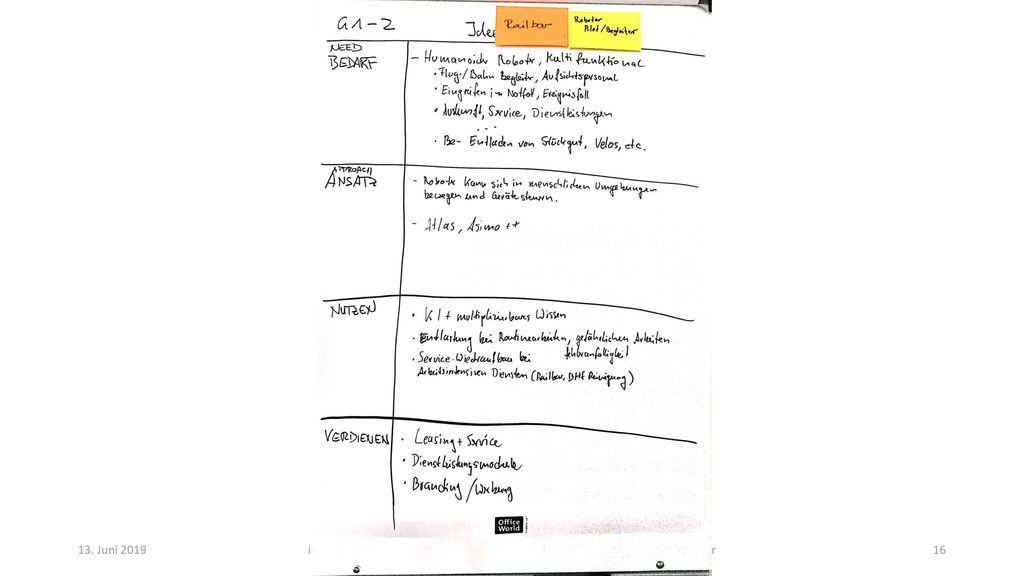 G1-2
Idee
Railbar
Roboter
Pilot/Begleiter
NEED
BEDARF
- Humanoider Roboter, Multifunktional
• Flug-/Bahn Begleiter, Aufsichtspersonal
• Eingreifen im Notfall, Ereignisfall
• Auskunft, Service, Dienstleistungen
...
• Be- Entladen von Stückgut, Velos, etc.
APPROACH
ANSATZ
- Roboter kann sich in menschlichen Umgebungen
bewegen und Geräte steuern.
- Atlas, Asimo ++
NUTZEN
• KI + multiplizierbares Wissen
• Entlastung bei Routinearbeiten, gefährlichen Arbeiten
fehleranfälligkeit
• Service-Wiederaufbau bei
Arbeitsintensiven Diensten (Railbar, BHF Reinigung)
VERDIENEN
• Leasing + Service
• Dienstleistungsmodule
• Branding/Werbung
Office
World
13. Juni 2019
16